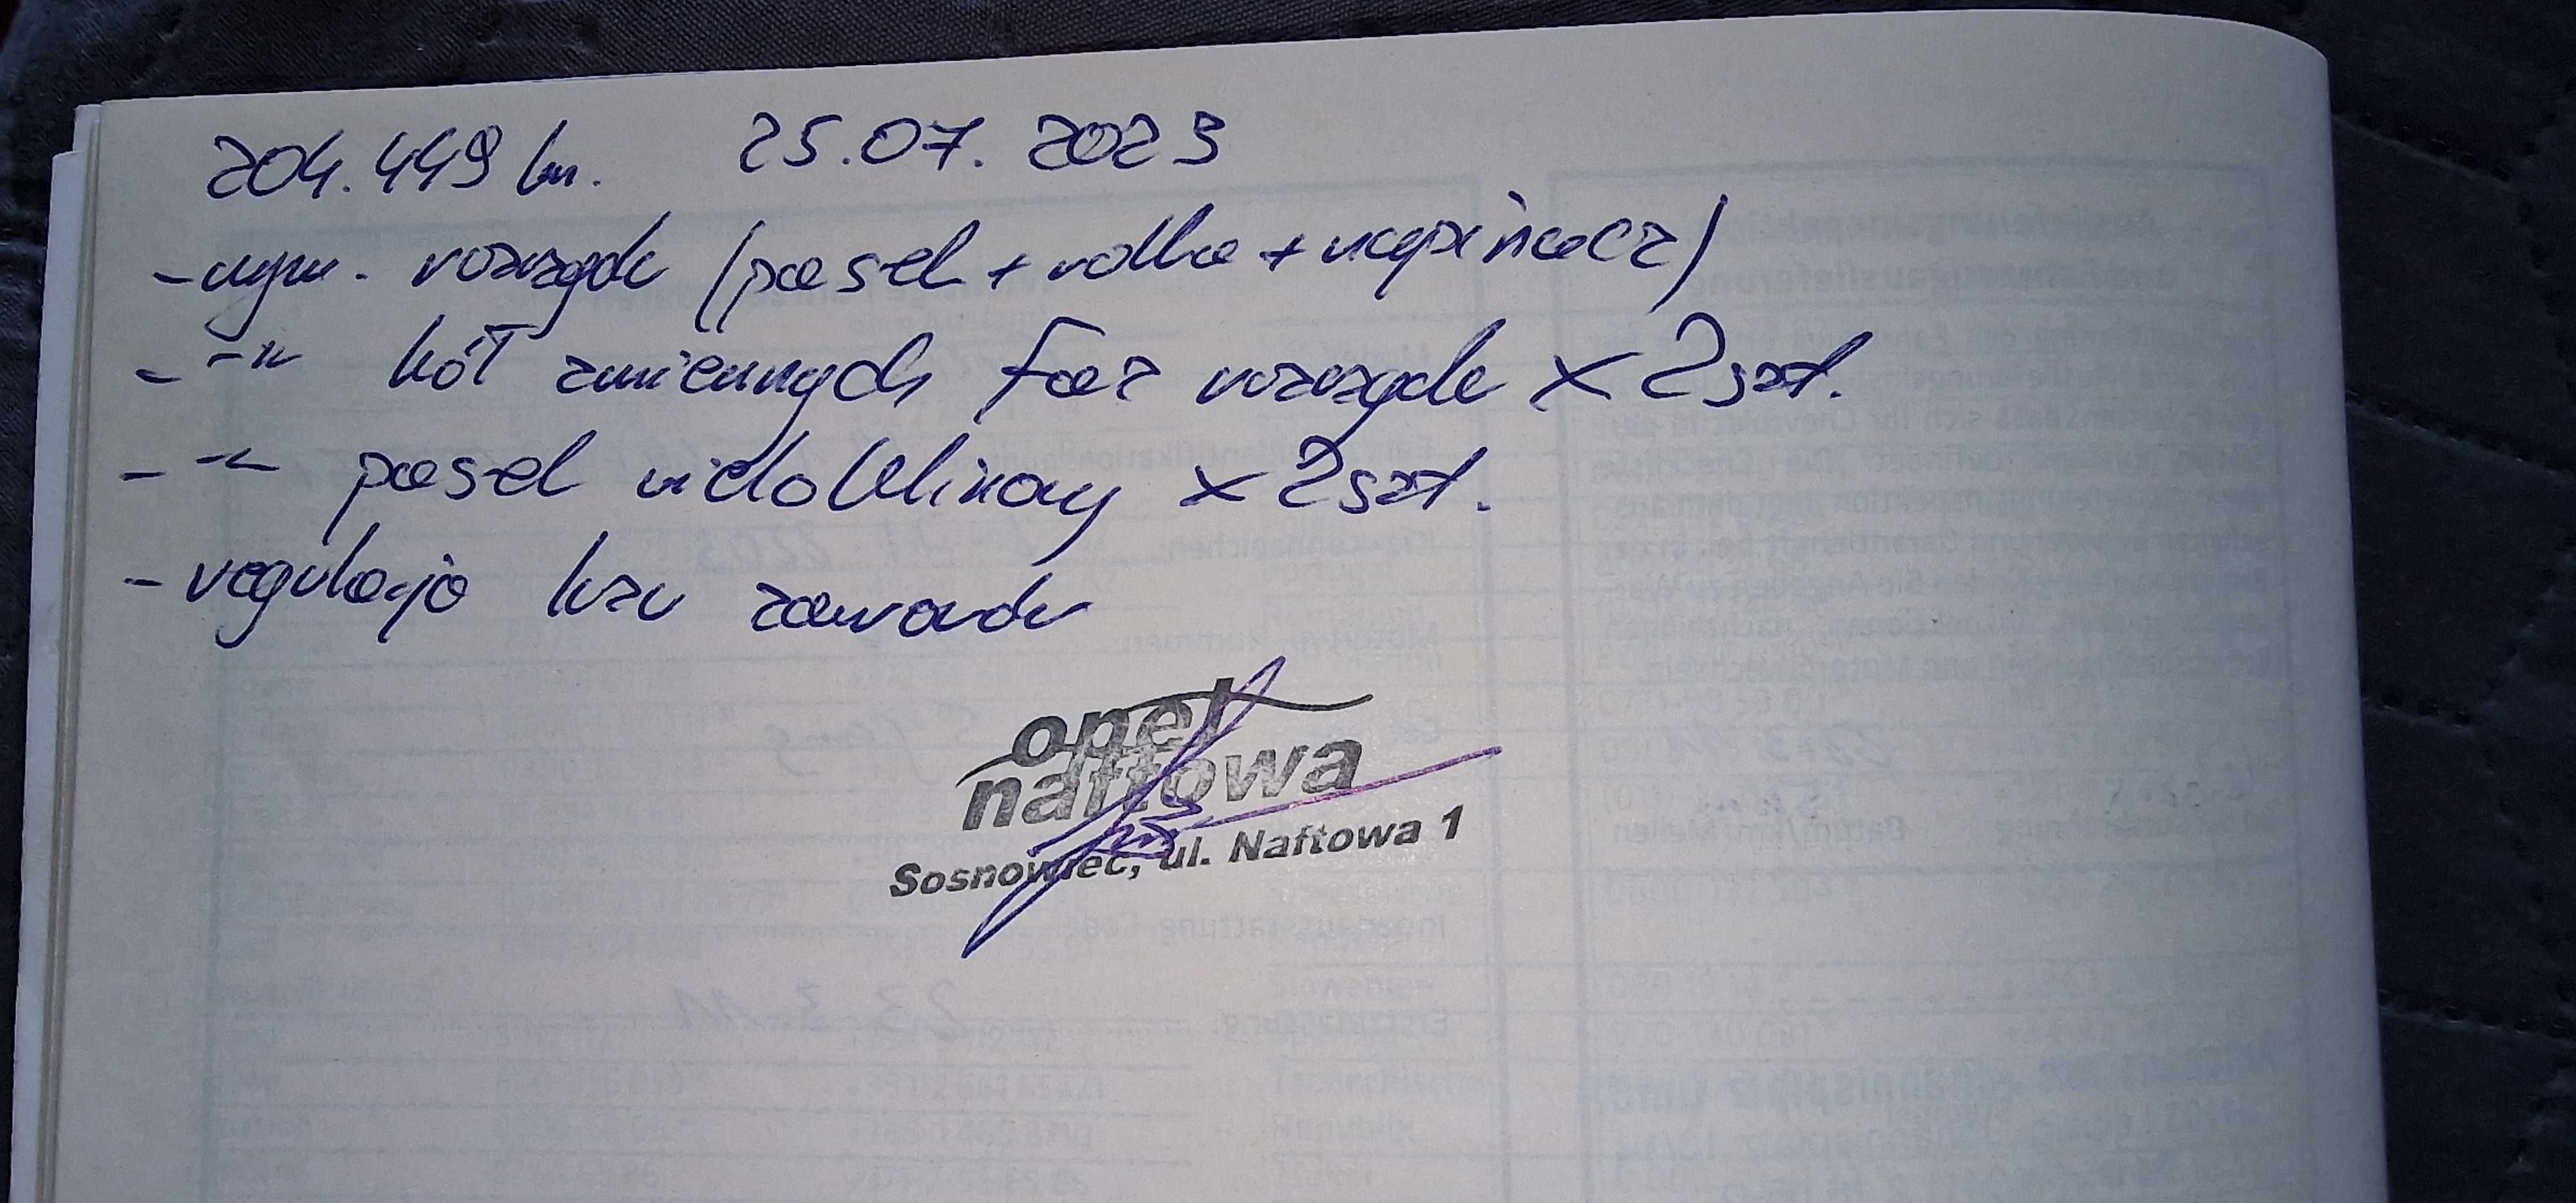 204.449 km. 25.07.2023
- wym. rozrządu (pasek + rolka + napinacz)
- -"- kół zmiennych faz rozrządu x 2szt.
- -"- pasek wieloklinowy x 2szt.
- regulacja luzu zaworów
opel
naftowa
Sosnowiec, ul. Naftowa 1